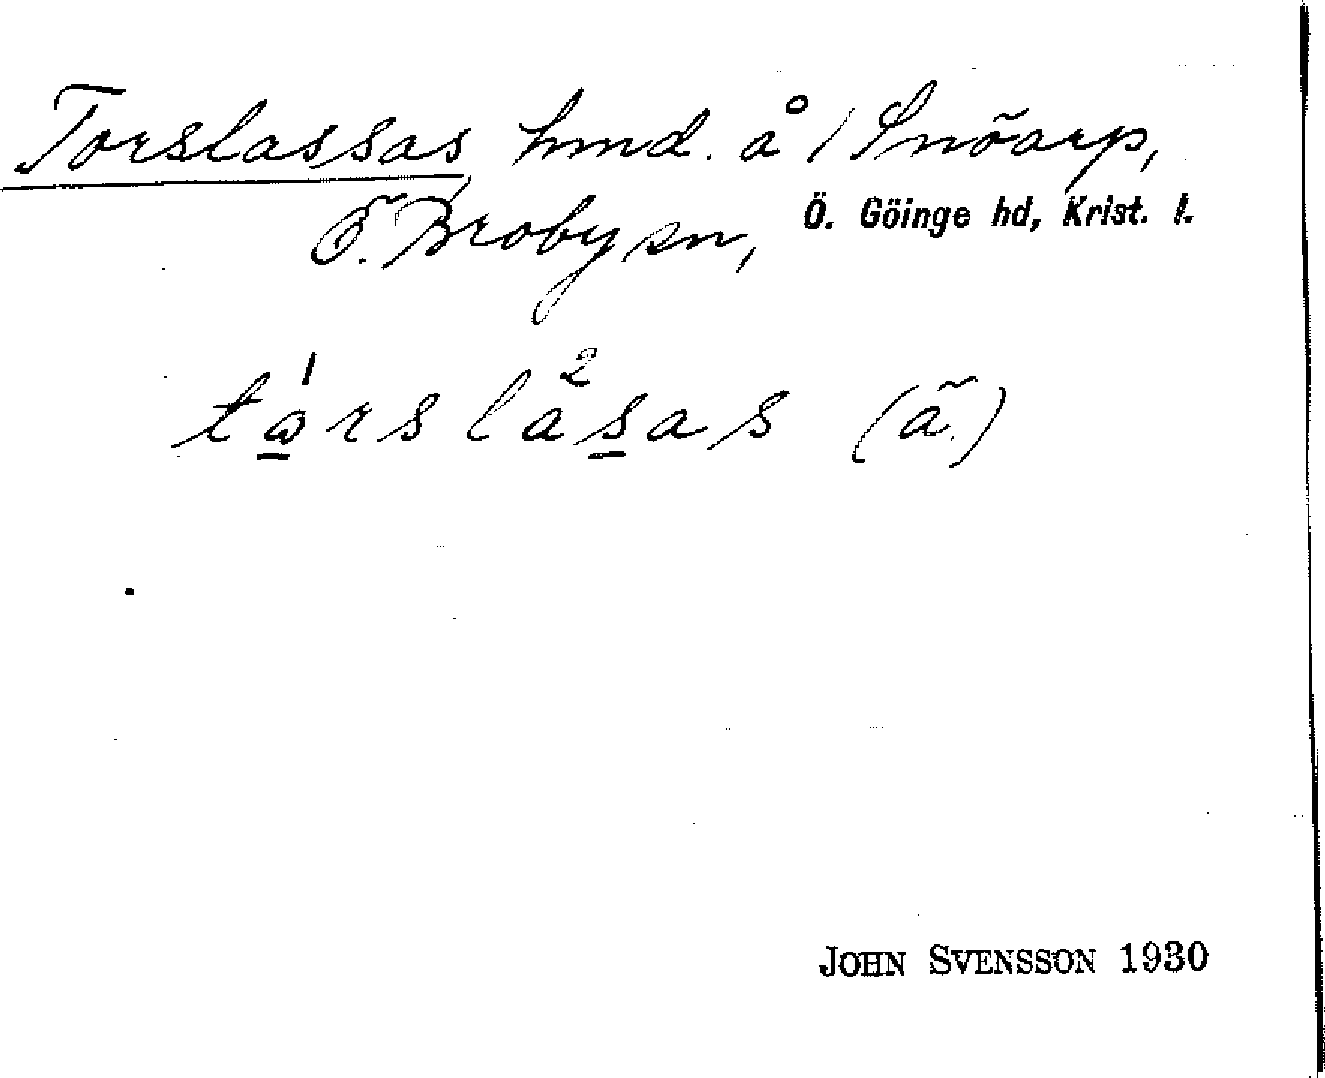 Torslassas hmd. å 1 Snöarp,
Ö. Broby sn, Ö. Göinge hd, Krist. l.
tɷ̠́rslàs̠as (ã.)
JOHN SVENSSON 1930